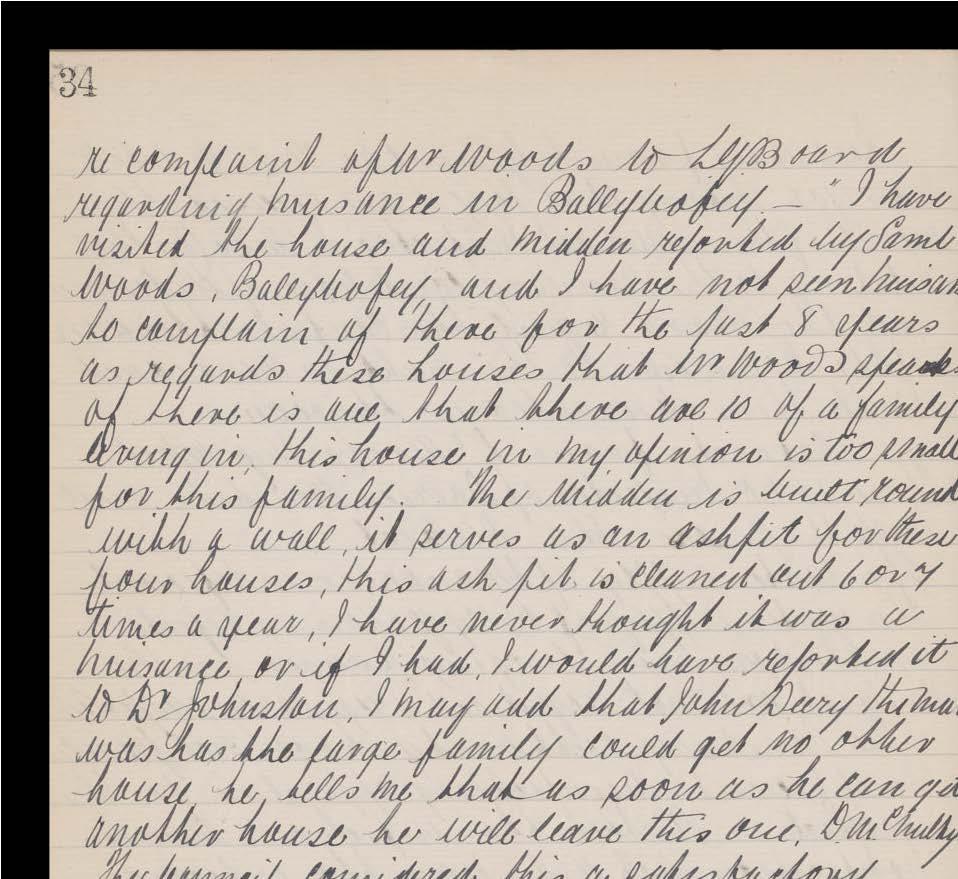 34
re complaint of Mr Woods to LGBoard
regarding nusance in Ballybofey — " I have
visited the house and midden reported by Saml
Woods, Ballybofey, and I have not seen
to complain of there for the past 8 years
as regards these houses that Mr Woods speaks
of there is one that there are 10 of a family
living in, this house in my opinion is too small
for this family. The Midden is built round
with a wall, it serves as an ashpit for these
four houses, this ash pit is cleaned out 6 or 7
times a year, I have never thought it was a
nuisance or if I had, I would have reported it
to Dr Johnston, I may add that John Deery the
was has the large family could get no other
house he tells me that as soon as he can get
another house he will leave this one. D
The considered this a satisfactory